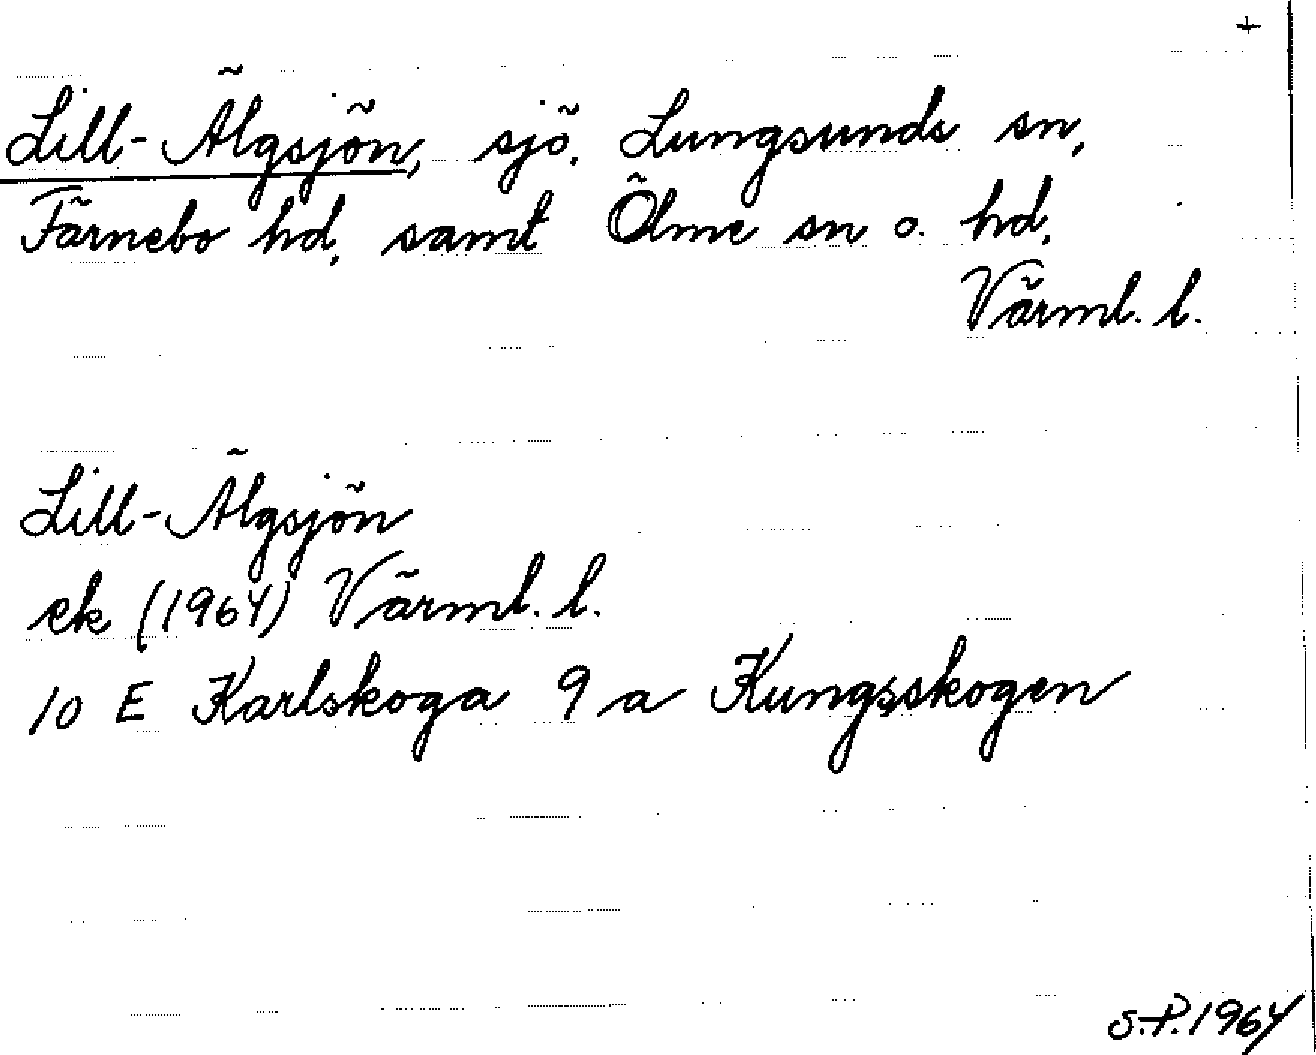 +
Lill-Älgsjön, sjö, Lungsunds sn,
Färnebo hd, samt Ölme sn o. hd,
Värml. l.
Lill-Älgsjön
ek (1964) Värml. l.
10 E Karlskoga 9 a Kungsskogen
S.P. 1964